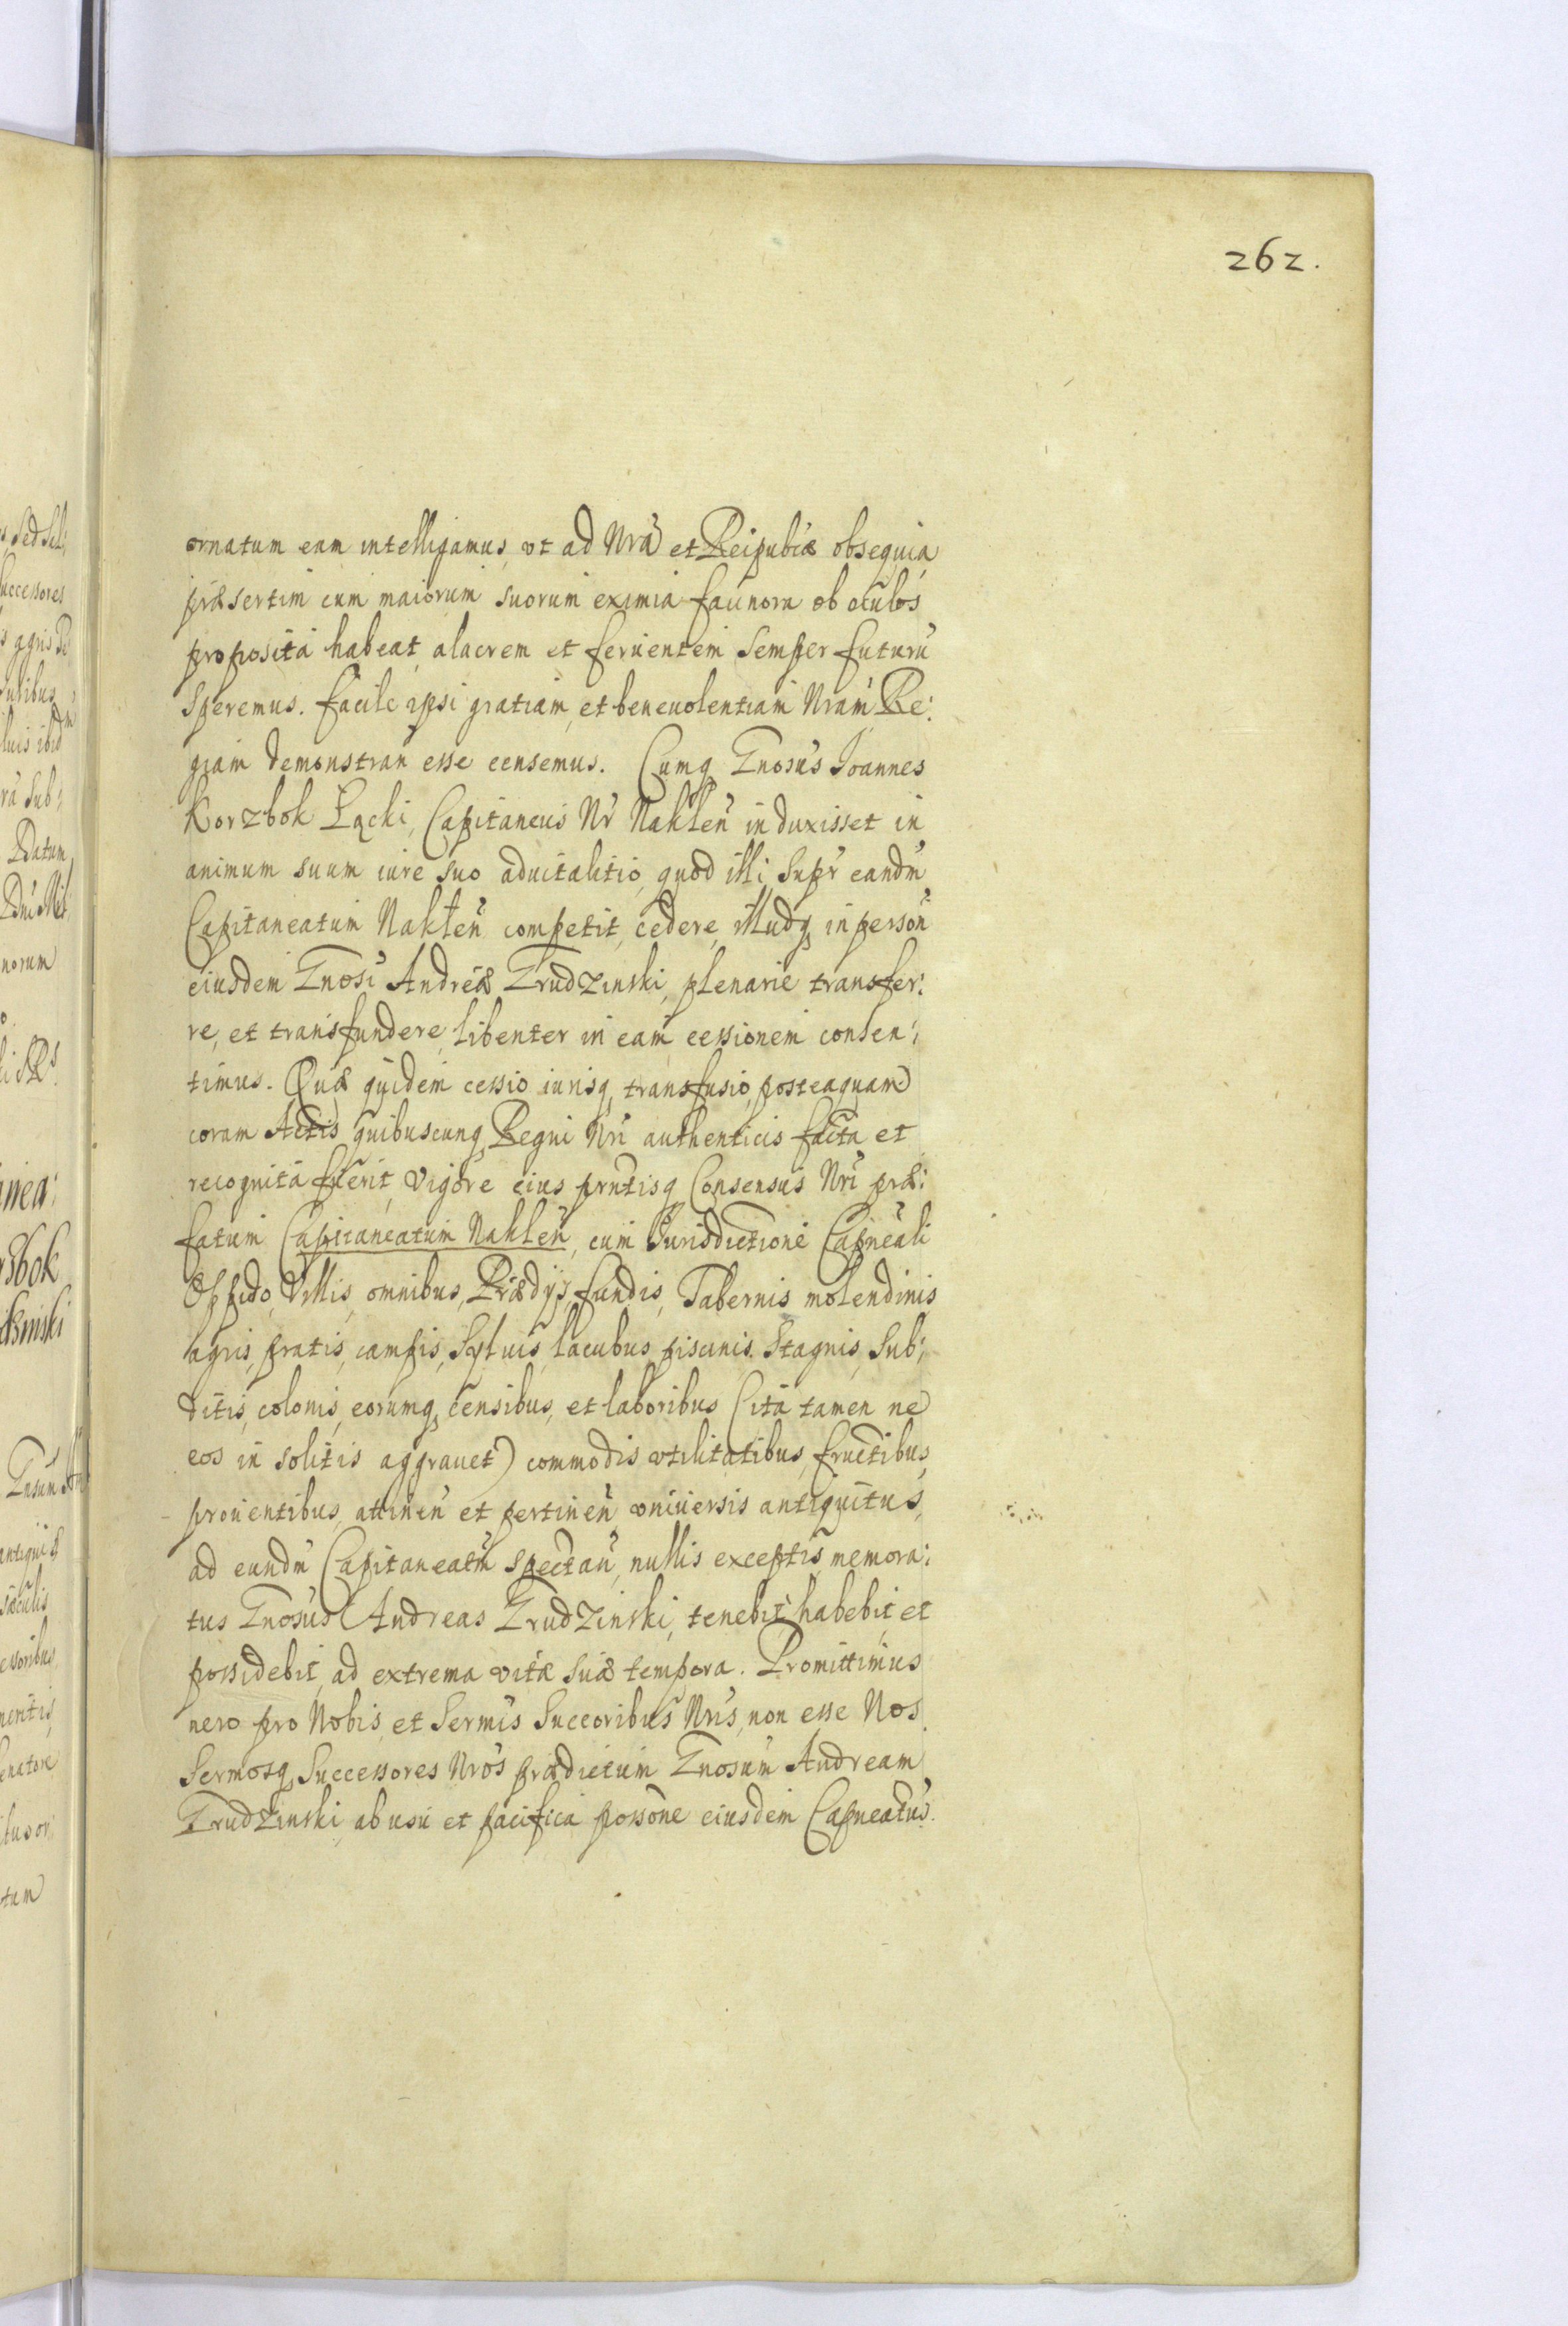 262.
ornatum eam intelligamus, vt ad Nrã et Reipubcæ obsequia,
præsertim cum maiorum suorum eximia facinora ob oculos
proposita habeat, alacrem et feruentem semper futurũ
Speremus. facile ipsi gratiam, et beneuolentiam Nram Re:
giam demonstran esse censemus. Cumq Gnosus Joannes
Korzbok Łącki, Capitaneus Nr Nakłen induxisset in
animum suum iure suo aduitalitio, quod illi supr eandm
Capitaneatum Nakłen competit, cedere, illudq in person
eiusdem Gnosi Andreæ Grudzinski, plenarie transfer:
re, et transfundere, libenter in eam cessionem consen:
timus. Quæ quidem cessio iurisq transfusio, posteaquam
coram Actis quibuscunq Regni Nri authenticis facta et
recognita fuerit, vigore eius prntisq Consensus Nri præ:
fatum Capitaneatum Naklen, cum Iurisdictione Capneali
Oppido, Villis, omnibus, Prædijs, fundis, Tabernis molendinis
agris, pratis, campis, Syluis, lacubus piscinis. Stagnis, Sub:
ditis, colonis, eorumq censibus, et laboribus (ita tamen ne
eos in solitis aggrauet) commodis vtilitatibus, fructibus,
prouentibus, attinen et pertinen vniuersis antiquitus,
ad eundm Capitaneatm spectan, nullis exceptis, memora:
tus Gnosus Andreas Grudzinski, tenebit habebit, et
possidebit, ad extrema vitæ suæ tempora. Promittimus
vero pro Nobis, et Sermis Succoribus Nris, non esse Nos
Sermosq Successores Nros prædictum Gnosum Andream
Grudzinski, ab usu et pacifica possone eiusdem Capneatus.